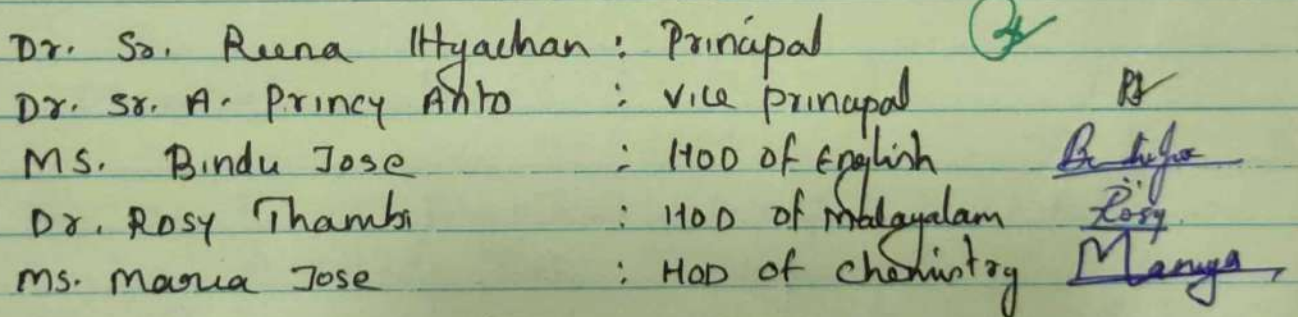 Dr. Sr. Reena Ittyachan : Principal
Dr. Sr. A. Princy Anto : Vice principal
Ms. Bindu Jose : HOD of English
Dr. Rosy Thambi : HOD of Malayalam Rosy
Ms. Maria Jose : HOD of chemistry